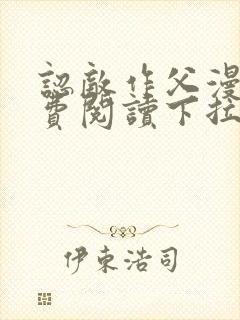 認敵作父漫
費閱讀下拉
伊東浩司